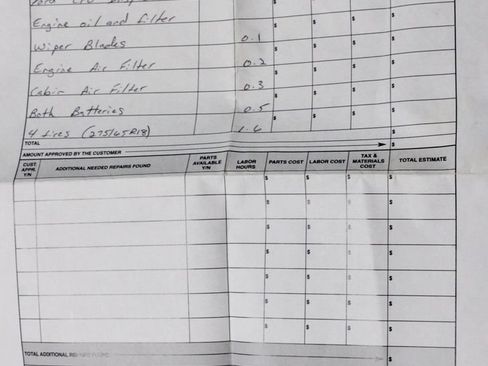 Engine oil and Filter $ $ $ $
Wiper Blades 0.1 $ $ $ $
Engine Air Filter 0.2 $ $ $ $
Cabin Air Filter 0.3 $ $ $ $
Both Batteries 0.5 $ $ $ $
4 tires (275/65R18) 1.6 $ $ $ $
TOTAL $
AMOUNT APPROVED BY THE CUSTOMER
CUST. APPR. Y/N ADDITIONAL NEEDED REPAIRS FOUND PARTS AVAILABLE Y/N LABOR HOURS PARTS COST LABOR COST TAX & MATERIALS COST TOTAL ESTIMATE
$ $ $ $
$ $ $ $
$ $ $ $
$ $ $ $
$ $ $ $
$ $ $ $
$ $ $ $
TOTAL ADDITIONAL REPAIRS FOUND $